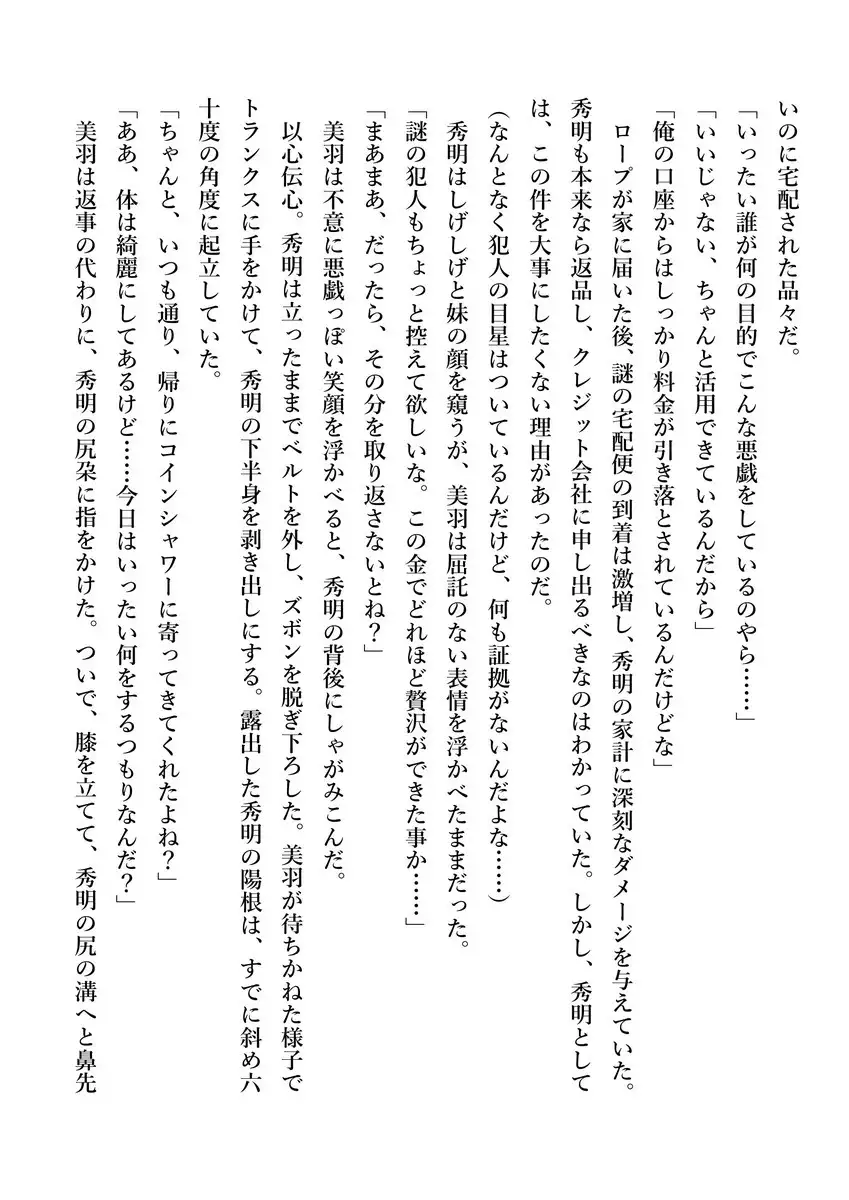 いのに宅配された品々だ。
「いったい誰が何の目的でこんな悪戯をしているのやら……」
「いいじゃない、ちゃんと活用できているんだから」
「俺の口座からはしっかり料金が引き落とされているんだけどな」
ロープが家に届いた後、謎の宅配便の到着は激増し、秀明の家計に深刻なダメージを与えていた。
秀明も本来なら返品し、クレジット会社に申し出るべきなのはわかっていた。しかし、秀明として
は、この件を大事にしたくない理由があったのだ。
(なんとなく犯人の目星はついているんだけど、何も証拠がないんだよな……)
秀明はしげしげと妹の顔を窺うが、美羽は屈託のない表情を浮かべたままだった。
「謎の犯人もちょっと控えて欲しいな。この金でどれほど贅沢ができた事か……」
「まあまあ、だったら、その分を取り返さないとね?」
美羽は不意に悪戯っぽい笑顔を浮かべると、秀明の背後にしゃがみこんだ。
以心伝心。秀明は立ったままでベルトを外し、ズボンを脱ぎ下ろした。美羽が待ちかねた様子で
トランクスに手をかけて、秀明の下半身を剥き出しにする。露出した秀明の陽根は、すでに斜め六
十度の角度に起立していた。
「ちゃんと、いつも通り、帰りにコインシャワーに寄ってきてくれたよね?」
「ああ、体は綺麗にしてあるけど……今日はいったい何をするつもりなんだ?」
美羽は返事の代わりに、秀明の尻朶に指をかけた。ついで、膝を立てて、秀明の尻の溝へと鼻先